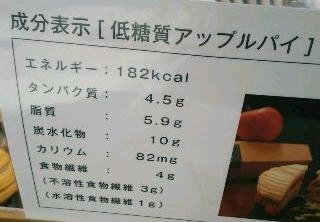 成分表示[低糖質アップルパイ]
エネルギー:182kcal
タンパク質: 4.5g
脂質 : 5.9g
炭水化物 : 10g
カリウム : 82mg
食物繊維 : 4g
(不溶性食物繊維 3g)
(水溶性食物繊維 1g)